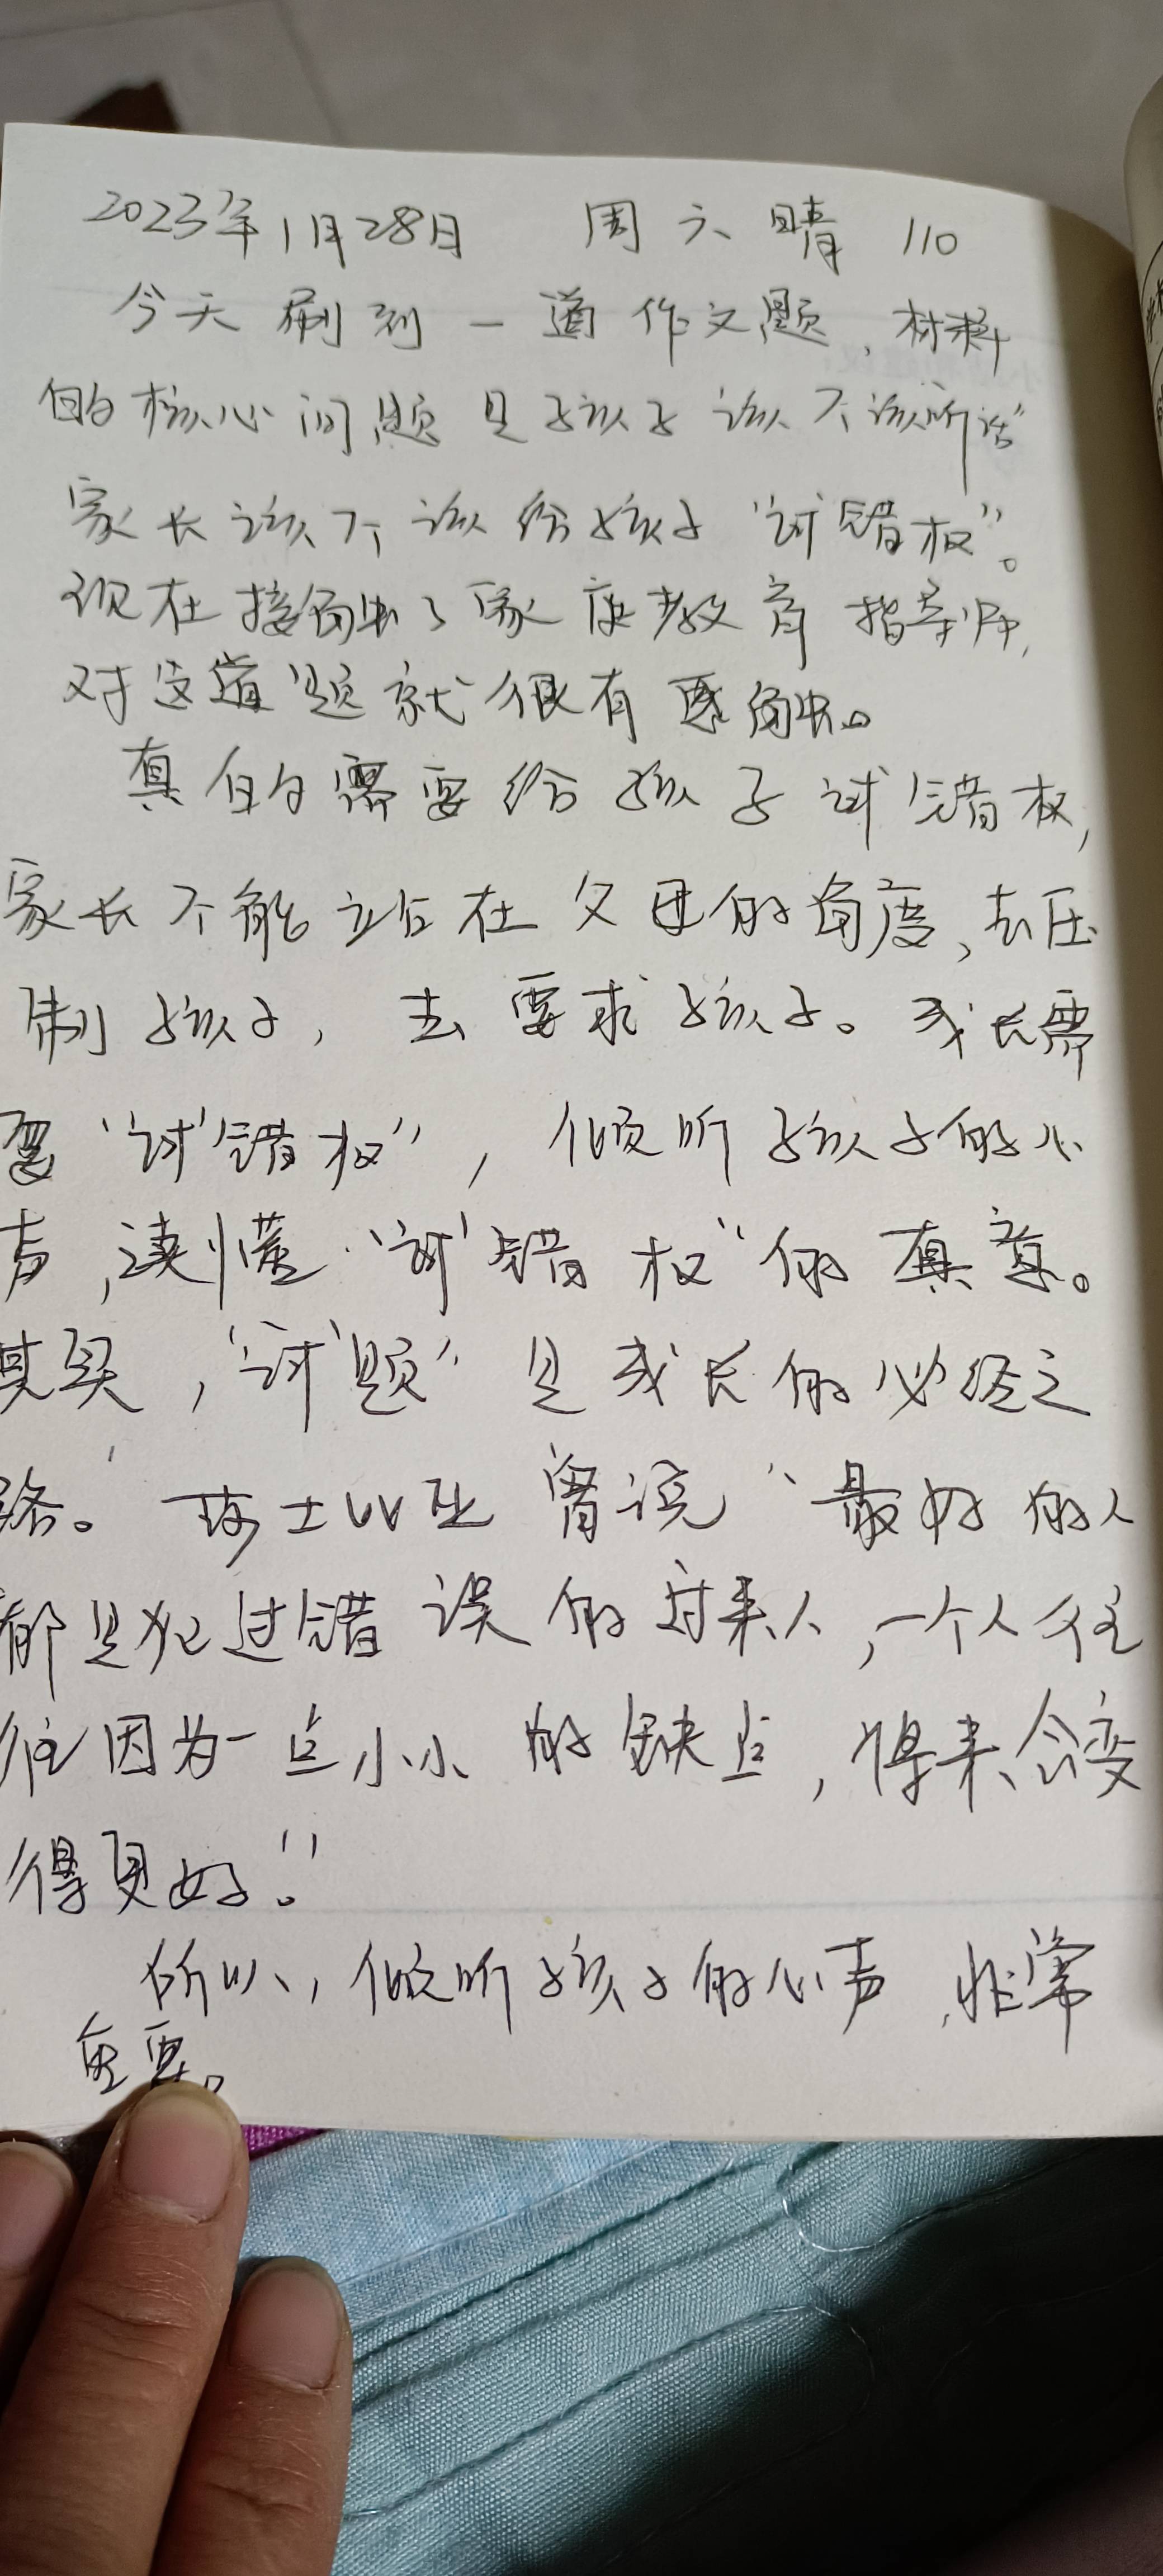 2023年1月28日 周六 晴 110
今天刷到一道作文题，材料
的核心问题是孩子该不该听话"
家长该不该给孩子"试错权"。
现在接触了家庭教育指导师，
对这道题就很有感触。
真的需要给孩子试错权，
家长不能站在父母的角度，去压
制孩子，去要求孩子。成长需
要"试错权"，倾听孩子的心
声，读懂"试错权"的真意。
其实，"试题"是成长的必经之
路。莎士比亚曾说"最好的人
都是犯过错误的过来人，一个人往
往因为一点小小的缺点，将来会变
得更好。"
所以，倾听孩子的心声，非常
重要。